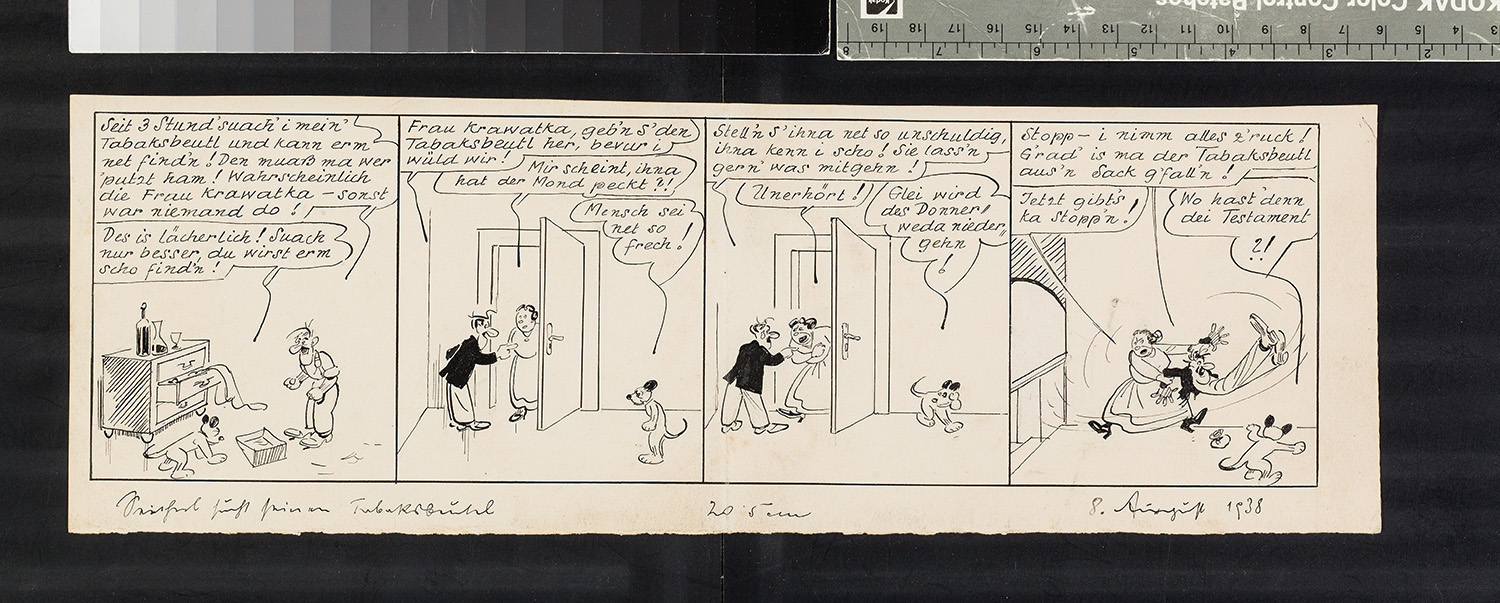 KODAK Color Control Patches
Seit 3 Stund' suach' i mein'
Tabaksbeutl und kann erm
net find'n! Den muaß ma wer
'putzt ham! Wahrscheinlich
die Frau Krawatka – sonst
war niemand do!
Des is lächerlich! Suach
nur besser, du wirst erm
scho find'n!
Frau Krawatka, geb'n S' den
Tabaksbeutl her, bevur i
wüld wir!
Mir scheint, ihna
hat der Mond peckt?!
Mensch sei
net so
frech!
Stell'n S' ihna net so unschuldig,
ihna kenn i scho! Sie lass'n
gern' was mitgehn!
Unerhört!
Glei wird
des Donner
weda nieder
gehn
!
Stopp – i nimm alles z'ruck!
G'rad' is ma der Tabaksbeutl
aus'n Sack g'fall'n!
Jetzt gibt's
ka Stopp'n!
Wo hast' denn
dei Testament
?!
Seicherl sucht seinen Tabaksbeutel
20 5 cm
8. August 1938